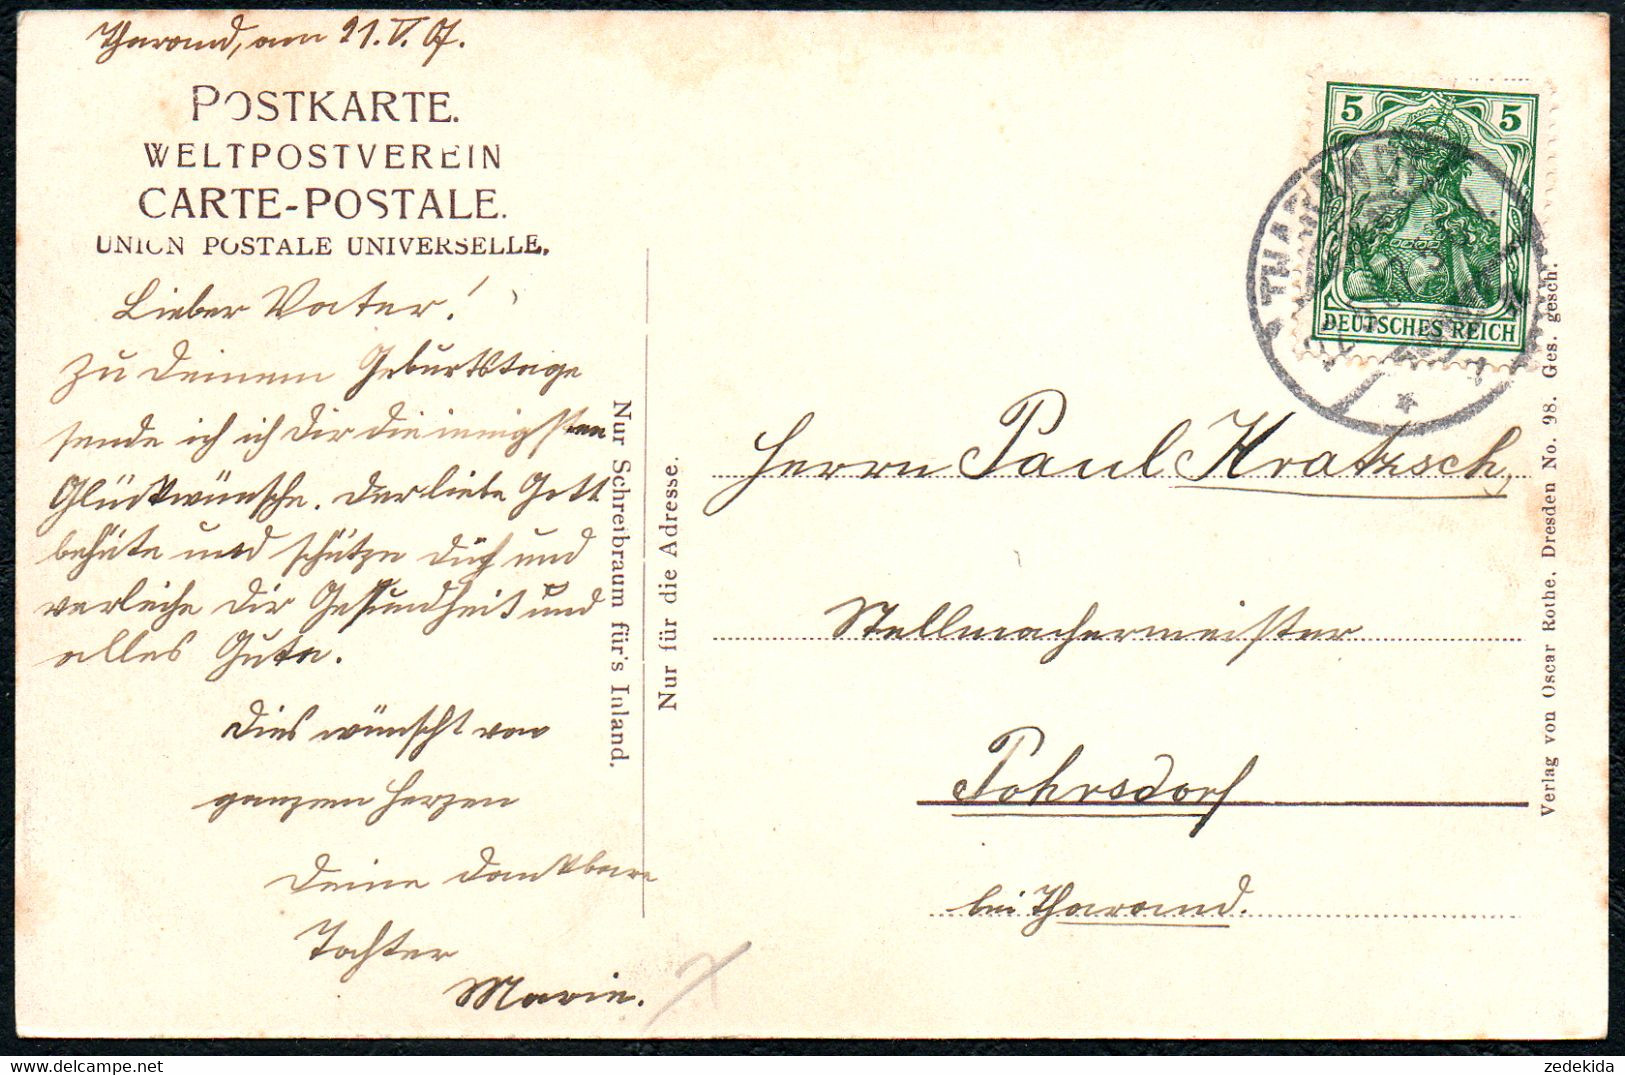 Tharand, am 21. V. 07.
POSTKARTE.
WELTPOSTVEREIN
CARTE-POSTALE.
UNION POSTALE UNIVERSELLE.
Lieber Vater!
Zu Deinem Geburtstage
sende ich ich Dir die innigsten
Glückwünsche. Der liebe Gott
behüte und schütze Dich und
verleihe Dir Gesundheit und
alles Gute.
Dies wünscht von
ganzem Herzen
Deine dankbare
Tochter
Marie.
Nur Schreibraum für's Inland.
Nur für die Adresse.
5 5
DEUTSCHES REICH
THARANDT
Herrn Paul Kratzsch,
Stellmachermeister
Pohrsdorf
bei Tharand.
Verlag von Oscar Rothe, Dresden No. 98. Ges. gesch.
zedekida